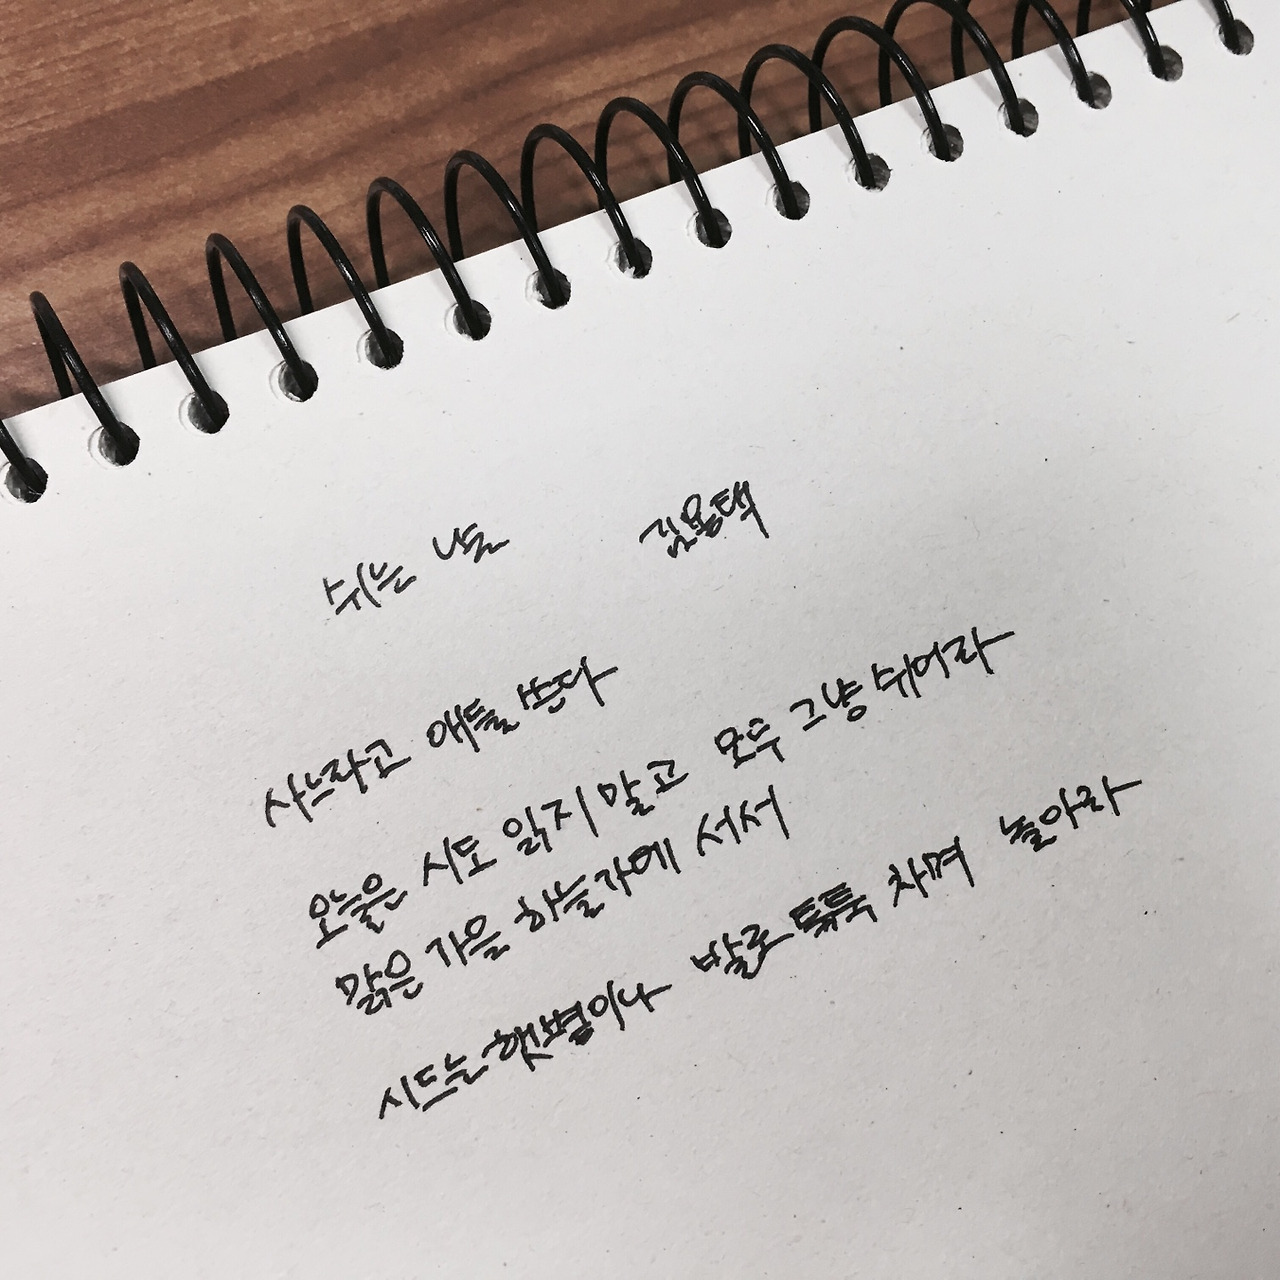 쉬는 날 김용택
사느라고 애들 쓴다
오늘은 시도 읽지 말고 모두 그냥 쉬어라
맑은 가을 하늘가에 서서
시드는 햇볕이나 발로 툭툭 차며 놀아라